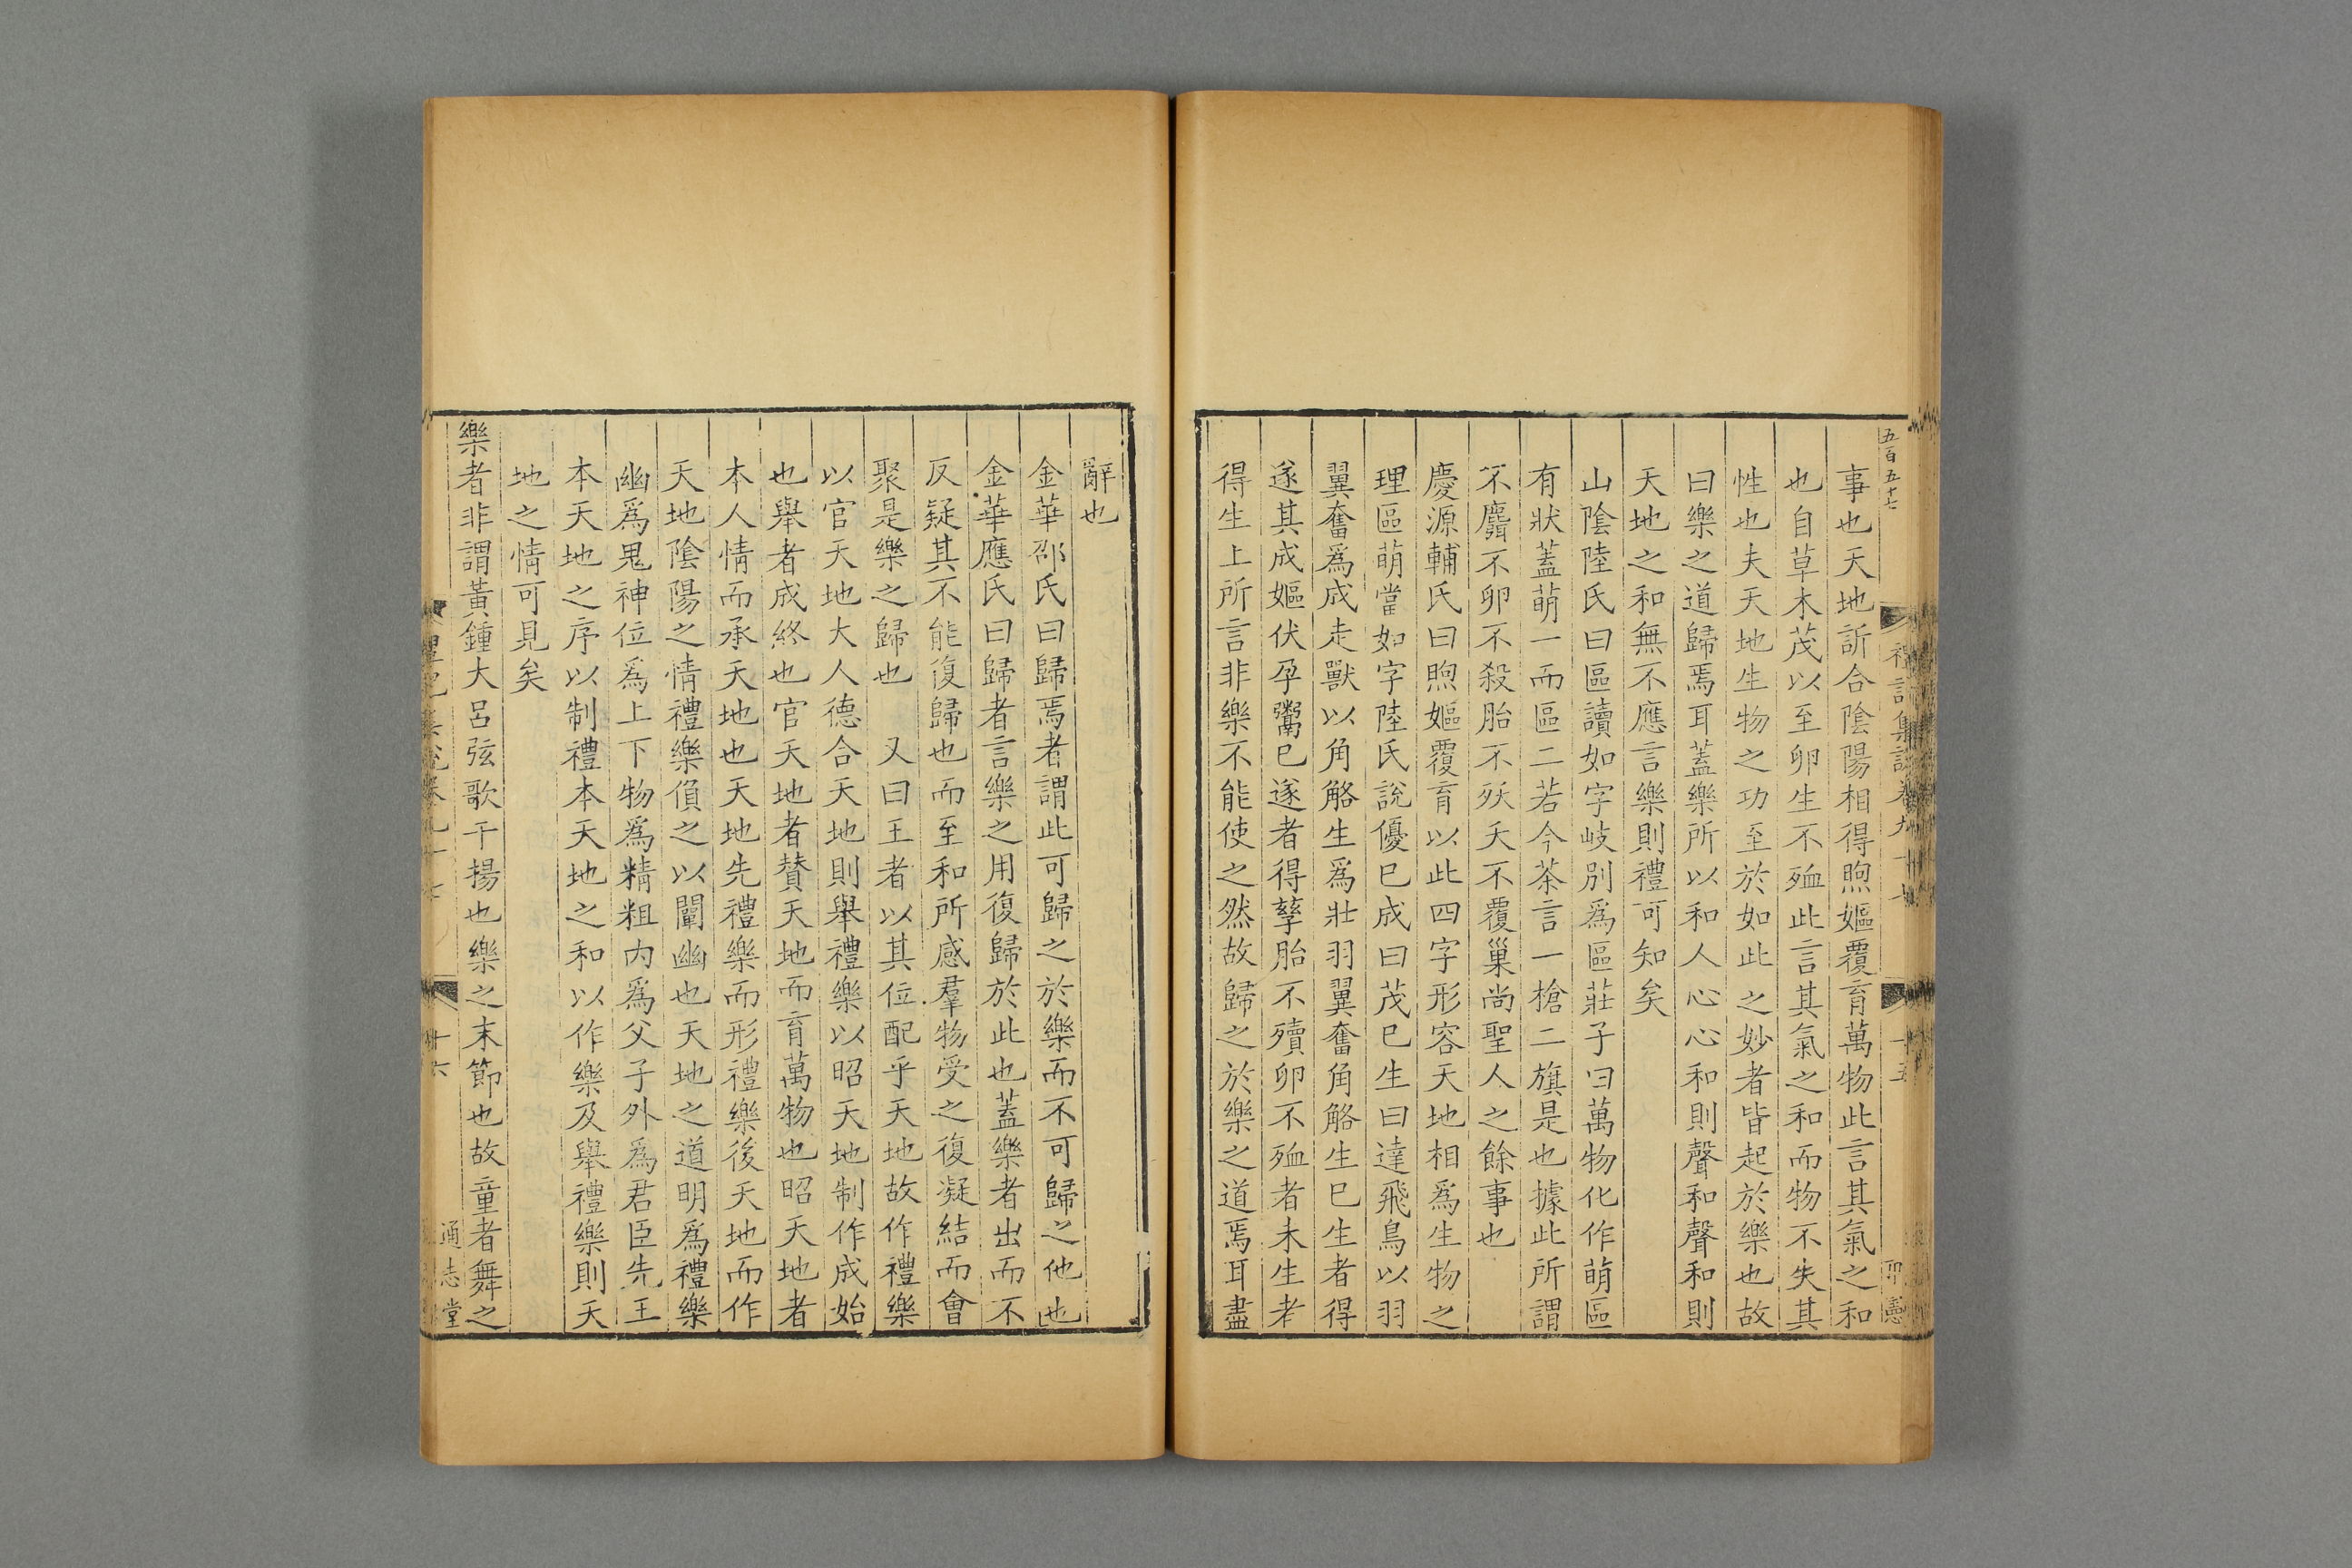 五百五十七
事也天地訢合陰陽相得煦嫗覆育萬物此言其氣之和
也自草木茂以至卵生不殈此言其氣之和而物不失其
性也夫天地生物之功至於如此之妙者皆起於樂也故
曰樂之道歸焉耳蓋樂所以和人心心和則聲和聲和則
天地之和無不應言樂則禮可知矣
山陰陸氏曰區讀如字岐別為區莊子曰萬物化作萌區
有狀蓋萌一而區二若今茶言一槍二旗是也據此所謂
不麛不卵不殺胎不殀夭不覆巢尚聖人之餘事也
慶源輔氏曰煦嫗覆育以此四字形容天地相爲生物之
理區萌當如字陸氏說優巳成曰茂巳生曰達飛鳥以羽
翼奮爲成走獸以角觡生爲壯羽翼奮角觡生巳生者得
遂其成嫗伏孕鬻巳遂者得孳胎不殰卵不殈者未生者
得生上所言非樂不能使之然故歸之於樂之道焉耳盡
辭也
金華邵氏曰歸焉者謂此可歸之於樂而不可歸之他也
金華應氏曰歸者言樂之用復歸於此也蓋樂者出而不
反疑其不能復歸也而至和所感羣物受之復凝結而會
聚是樂之歸也 又曰王者以其位配乎天地故作禮樂
以官天地大人德合天地則舉禮樂以昭天地制作成始
也舉者成終也官天地者賛天地而育萬物也昭天地者
本人情而承天地也天地先禮樂而形禮樂後天地而作
天地陰陽之情禮樂偩之以闡幽也天地之道明爲禮樂
幽爲鬼神位爲上下物爲精粗内爲父子外爲君臣先王
本天地之序以制禮本天地之和以作樂及舉禮樂則天
地之情可見矣
樂者非謂黃鍾大呂弦歌干揚也樂之末節也故童者舞之
通志堂